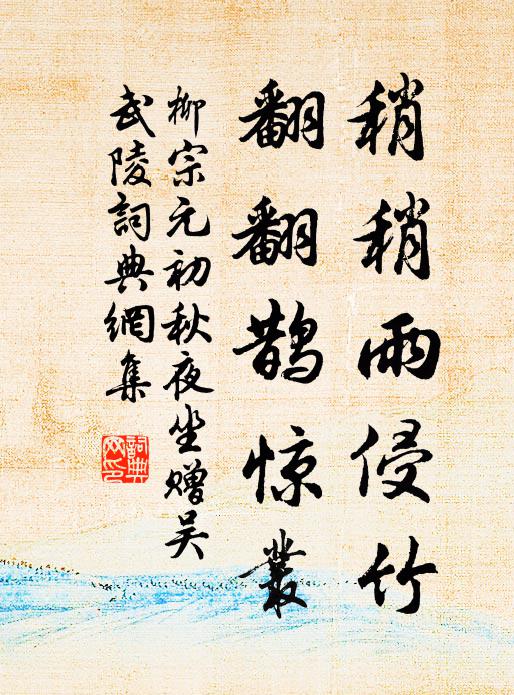 稍稍雨侵竹
翻翻鹊惊叢
柳宗元初秋夜坐赠吴
武陵詞典網集
詞典